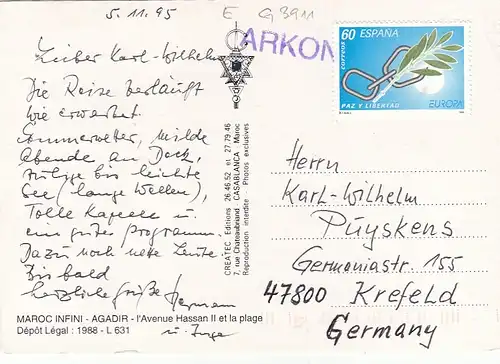 5.11.95
E G 3911
ARKON
60 ESPAÑA
correos
PAZ Y LIBERTAD
EUROPA
Lieber Karl-Wilhelm
Die Reise verläuft
wie erwartet.
Sommerwetter, milde
Abende an Deck,
ruhige bis leichte
See (lange Wellen),
Tolle Kapelle u.
ein gutes Programm.
Dazu noch nette Leute.
Bis bald
herzliche Grüße Hermann
u. Inge
CREATEC Editions 26.46.52 et 27.79.46
7, rue Châteaubriand CASABLANCA Maroc
Reproduction interdite Photos exclusives
Herrn
Karl-Wilhelm
Puyskens
Germaniastr. 155
47800 Krefeld
Germany
MAROC INFINI - AGADIR - l'Avenue Hassan II et la plage
Dépôt Légal : 1988 - L 631